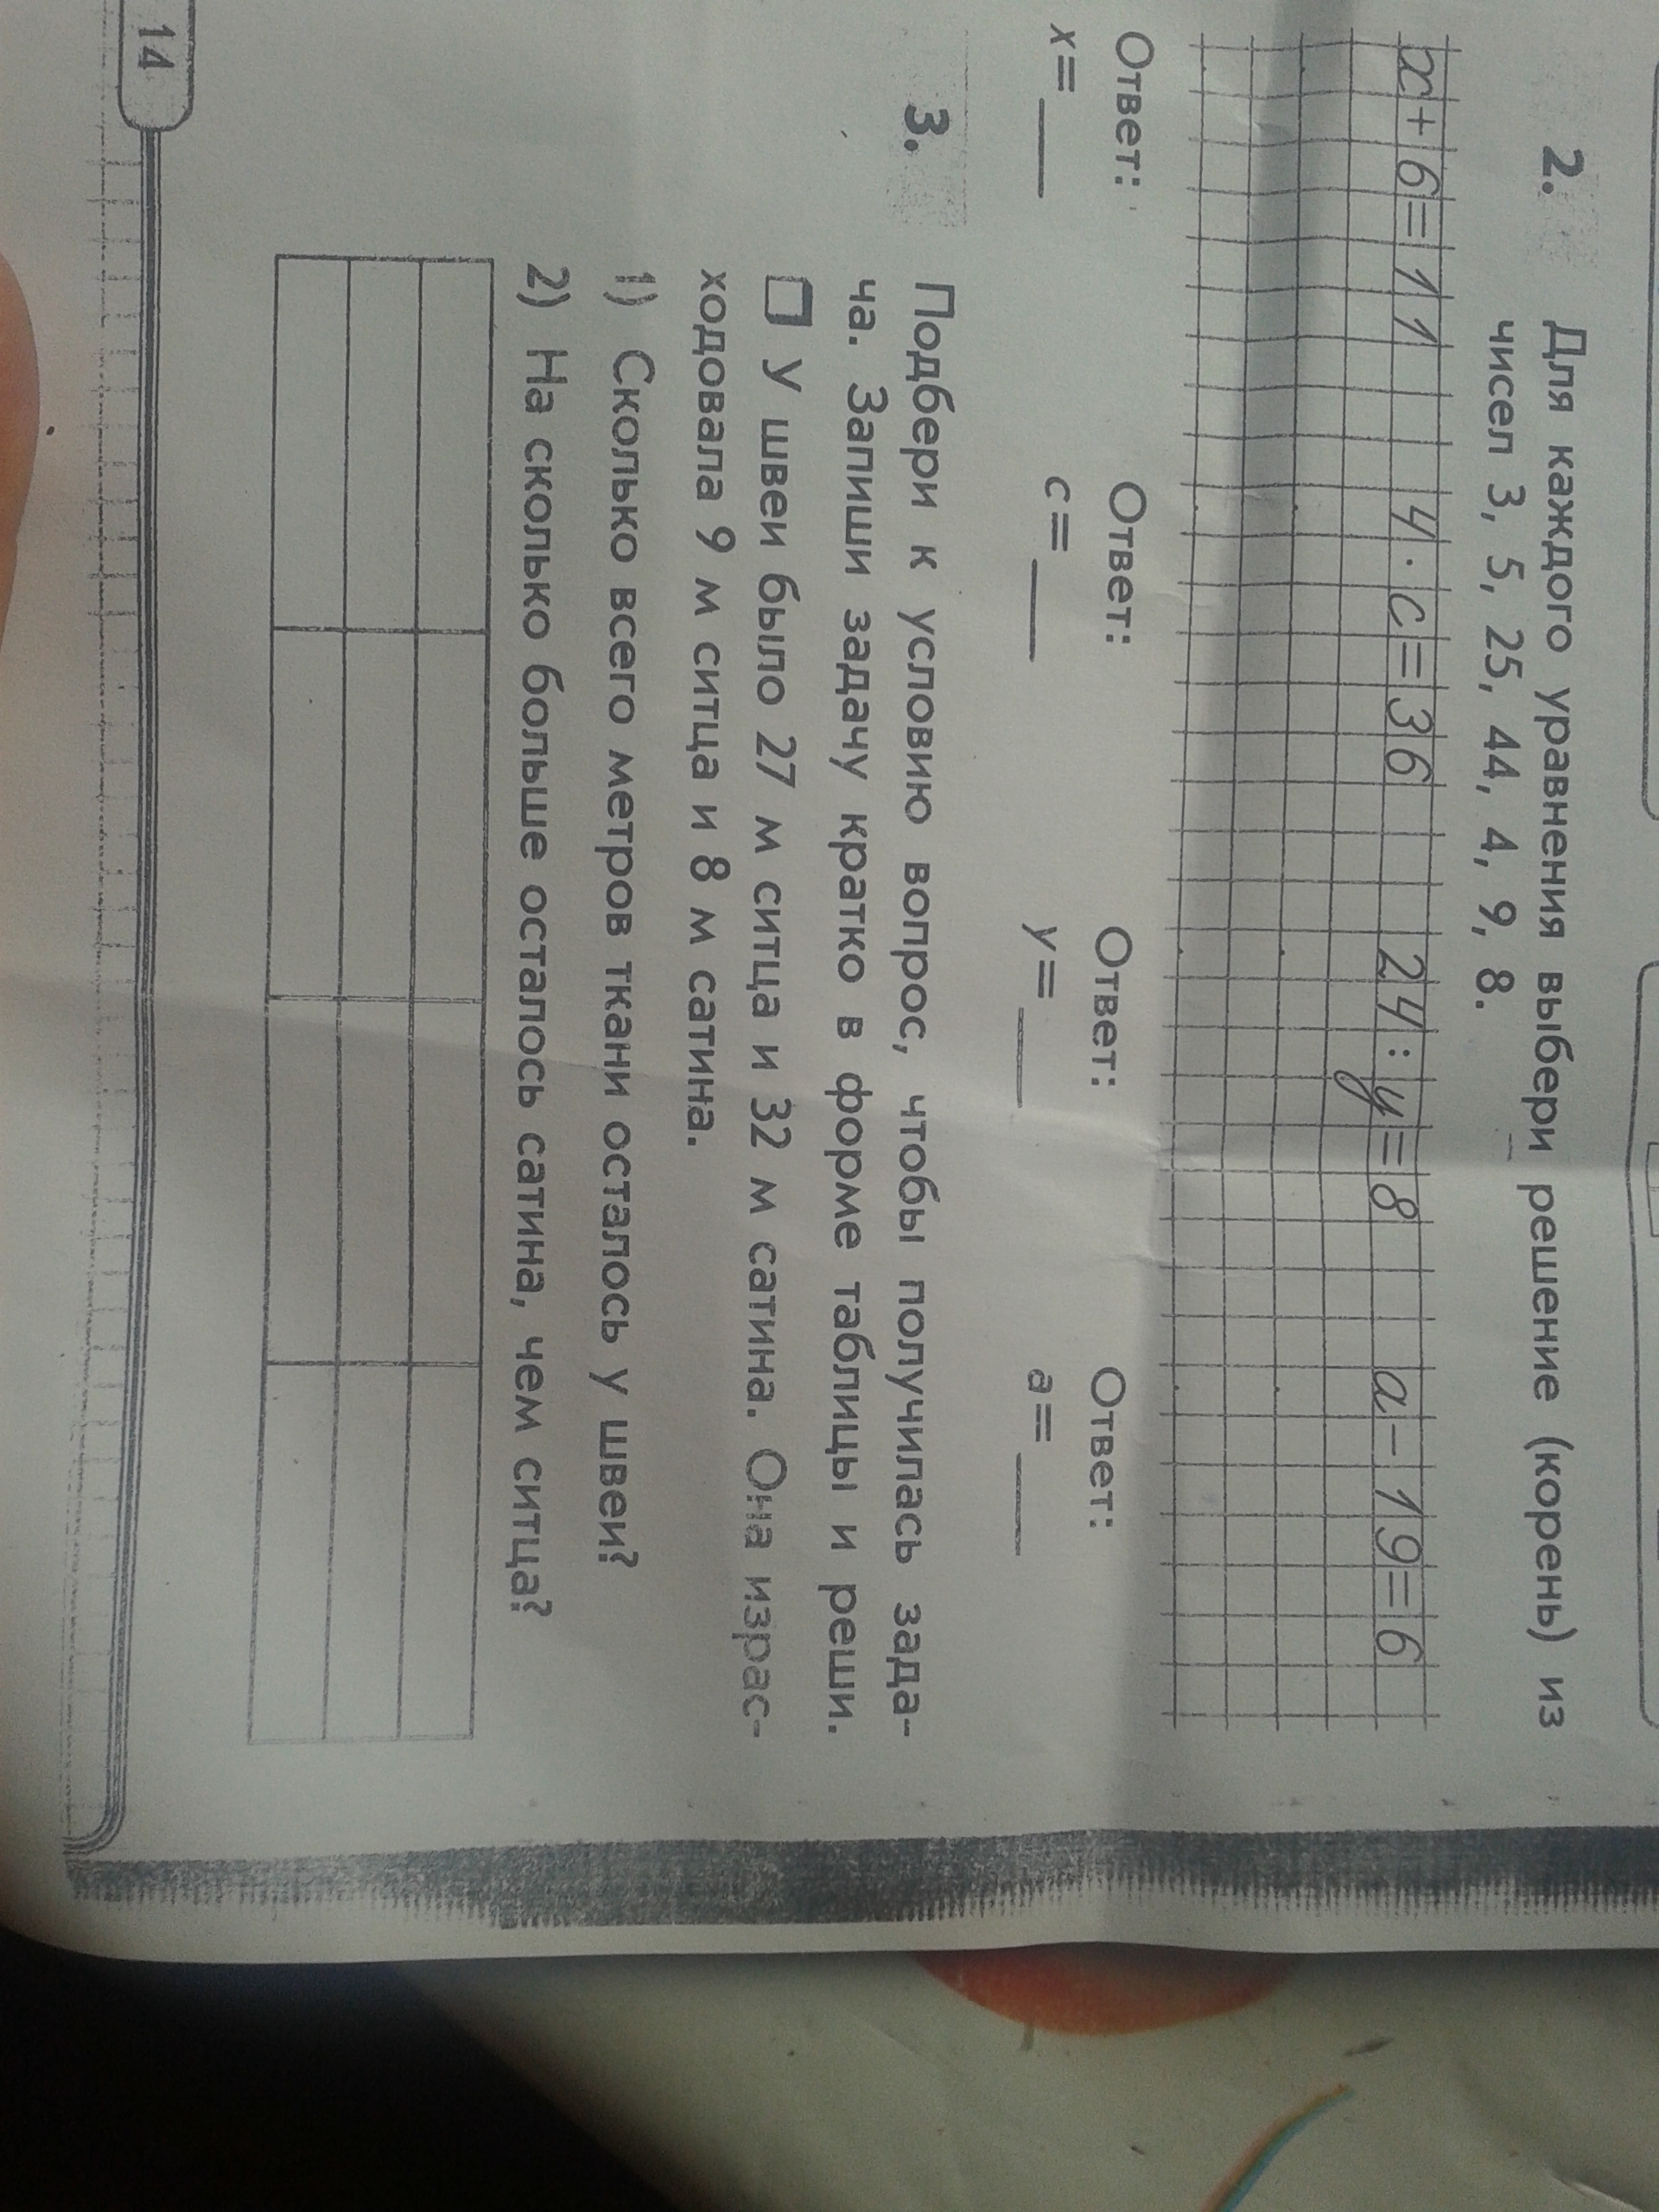 2. Для каждого уравнения выбери решение (корень) из
чисел 3, 5, 25, 44, 4, 9, 8.
x+6=11 4·c=36 24:y=8 a-19=6
Ответ: Ответ: Ответ: Ответ:
x=___ c=___ y=___ a=___
3. Подбери к условию вопрос, чтобы получилась зада-
ча. Запиши задачу кратко в форме таблицы и реши.
У швеи было 27 м ситца и 32 м сатина. Она израс-
ходовала 9 м ситца и 8 м сатина.
1) Сколько всего метров ткани осталось у швеи?
2) На сколько больше осталось сатина, чем ситца?
14